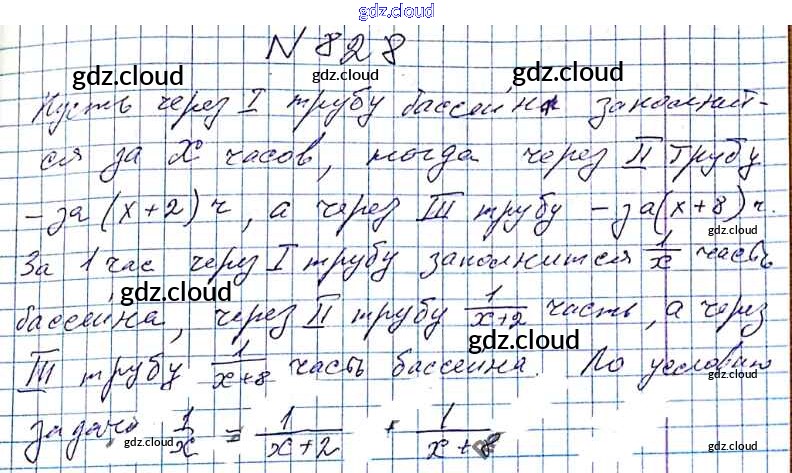 gdz.cloud
N 828
gdz.cloud gdz.cloud gdz.cloud
Пусть через I трубу бассейн заполнит-
ся за x часов, тогда через II трубу
gdz.cloud gdz.cloud gdz.cloud
- за (x+2) ч, а через III трубу - за (x+8) ч.
gdz.cloud
За 1 час через I трубу заполнится 1/x часть
gdz.cloud gdz.cloud
бассейна, через II трубу 1/(x+2) часть, а через
gdz.cloud
III трубу 1/(x+8) часть бассейна. По условию
задачи 1/x = 1/(x+2) + 1/(x+8)
gdz.cloud gdz.cloud gdz.cloud